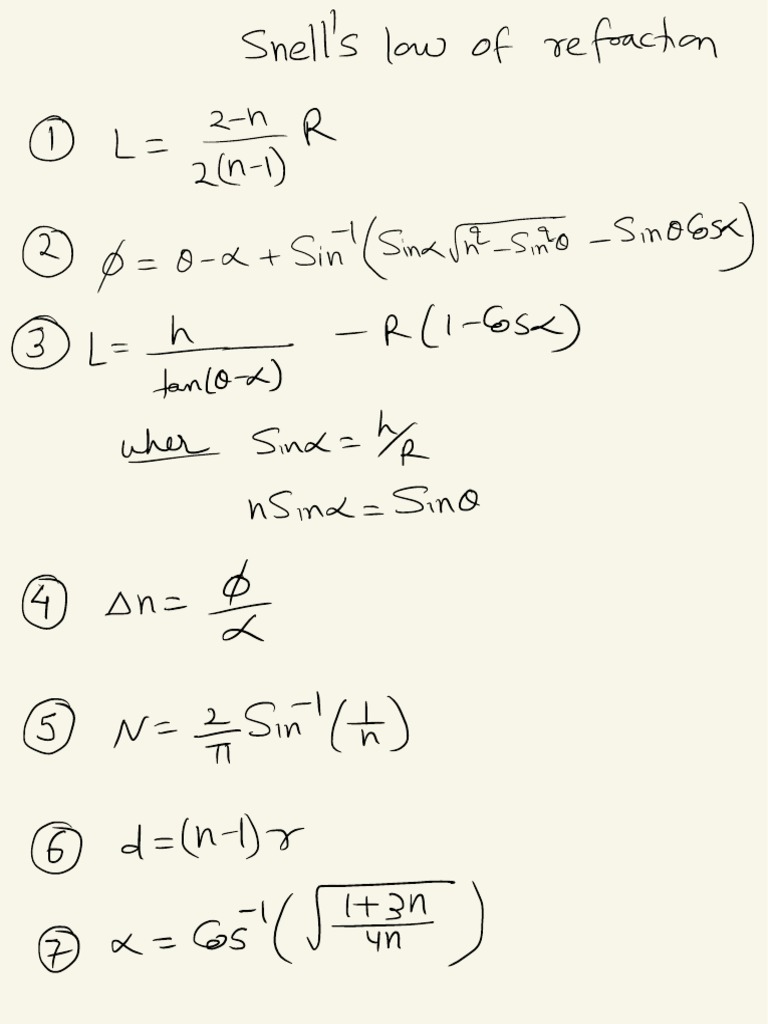 Snell's law of refraction
① L = (2-n)/(2(n-1)) R
② φ = θ-α + Sin⁻¹(Sinα √(n²-Sin²θ) - Sinθ Cosα)
③ L = h/tan(θ-α) - R(1-Cosα)
wher Sinα = h/R
nSinα = Sinθ
④ Δn = φ/α
⑤ N = 2/π Sin⁻¹(1/n)
⑥ d = (n-1)r
⑦ α = Cos⁻¹(√((1+3n)/4n))